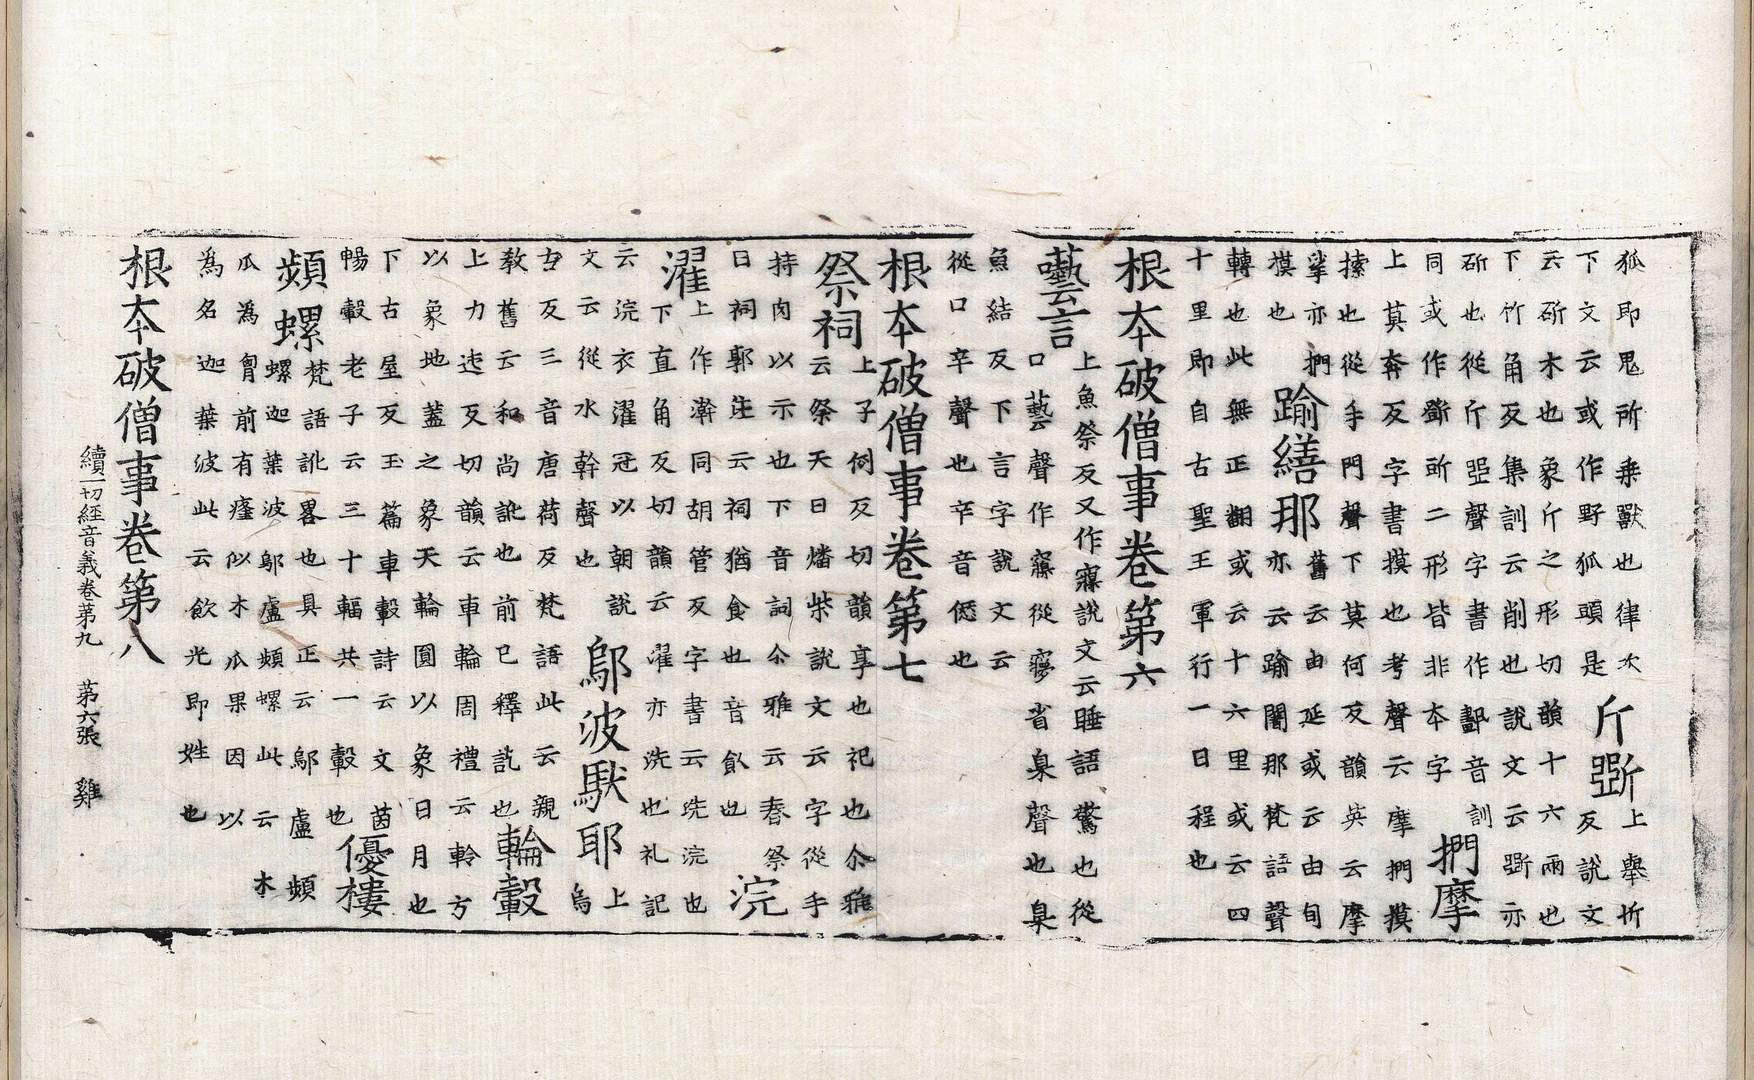 狐即鬼所乗獸也律次
下文云或作野狐頭是 斤斲 上舉忻
反說文
云斫木也象斤之形切韻十六兩也
下竹角反集訓云削也說文云斲亦
斫也從斤㔁聲字書作㔁音訓
同或作斵斫二形皆非本字 捫摩
上莫奔反字書摸也考聲云摩捫摸
㨞也從手門聲下莫何反韻英云摩
挲亦捫
摸也 踰繕那 舊云由延或云由旬
亦云踰闍那梵語聲
轉也此無正翻或云十六里或云四
十里即自古聖王軍行一日程也
根本破僧事卷第六
藝言 上魚祭反又作寱說文云睡語驚也從
口藝聲作寱從㝱省臬聲也臬
魚結反下言字說文云
從口䇂聲也䇂音愆也
根本破僧事卷第七
祭祠 上子例反切韻享也祀也尒雅
云祭天曰燔柴說文云字從手
持肉以示也下音詞尒雅云春祭
曰祠郭注云祠猶食也音飤也 浣
濯 上作澣同胡管反字書云洗浣也
下直角反切韻云濯亦洗也礼記
云浣衣濯冠以朝說
文云從水幹聲也 鄔波馱耶 上
烏
古反三音唐荷反梵語此云親
教舊云和尚訛也前已釋訖也 輪轂
上力迍反切韻云車輪周禮云軨方
以象地蓋之象天輪圓以象日月也
下古屋反玉篇車轂詩云文茵
暢轂老子云三十輻共一轂也 優樓
頻螺 梵語訛畧也具正云鄔盧頻
螺迦葉波鄔盧頻螺此云木
瓜為胷前有㾗似木瓜果因以
為名迦葉波此云飲光即姓也
根本破僧事卷第八
續一切經音義卷第九 第六張 雞